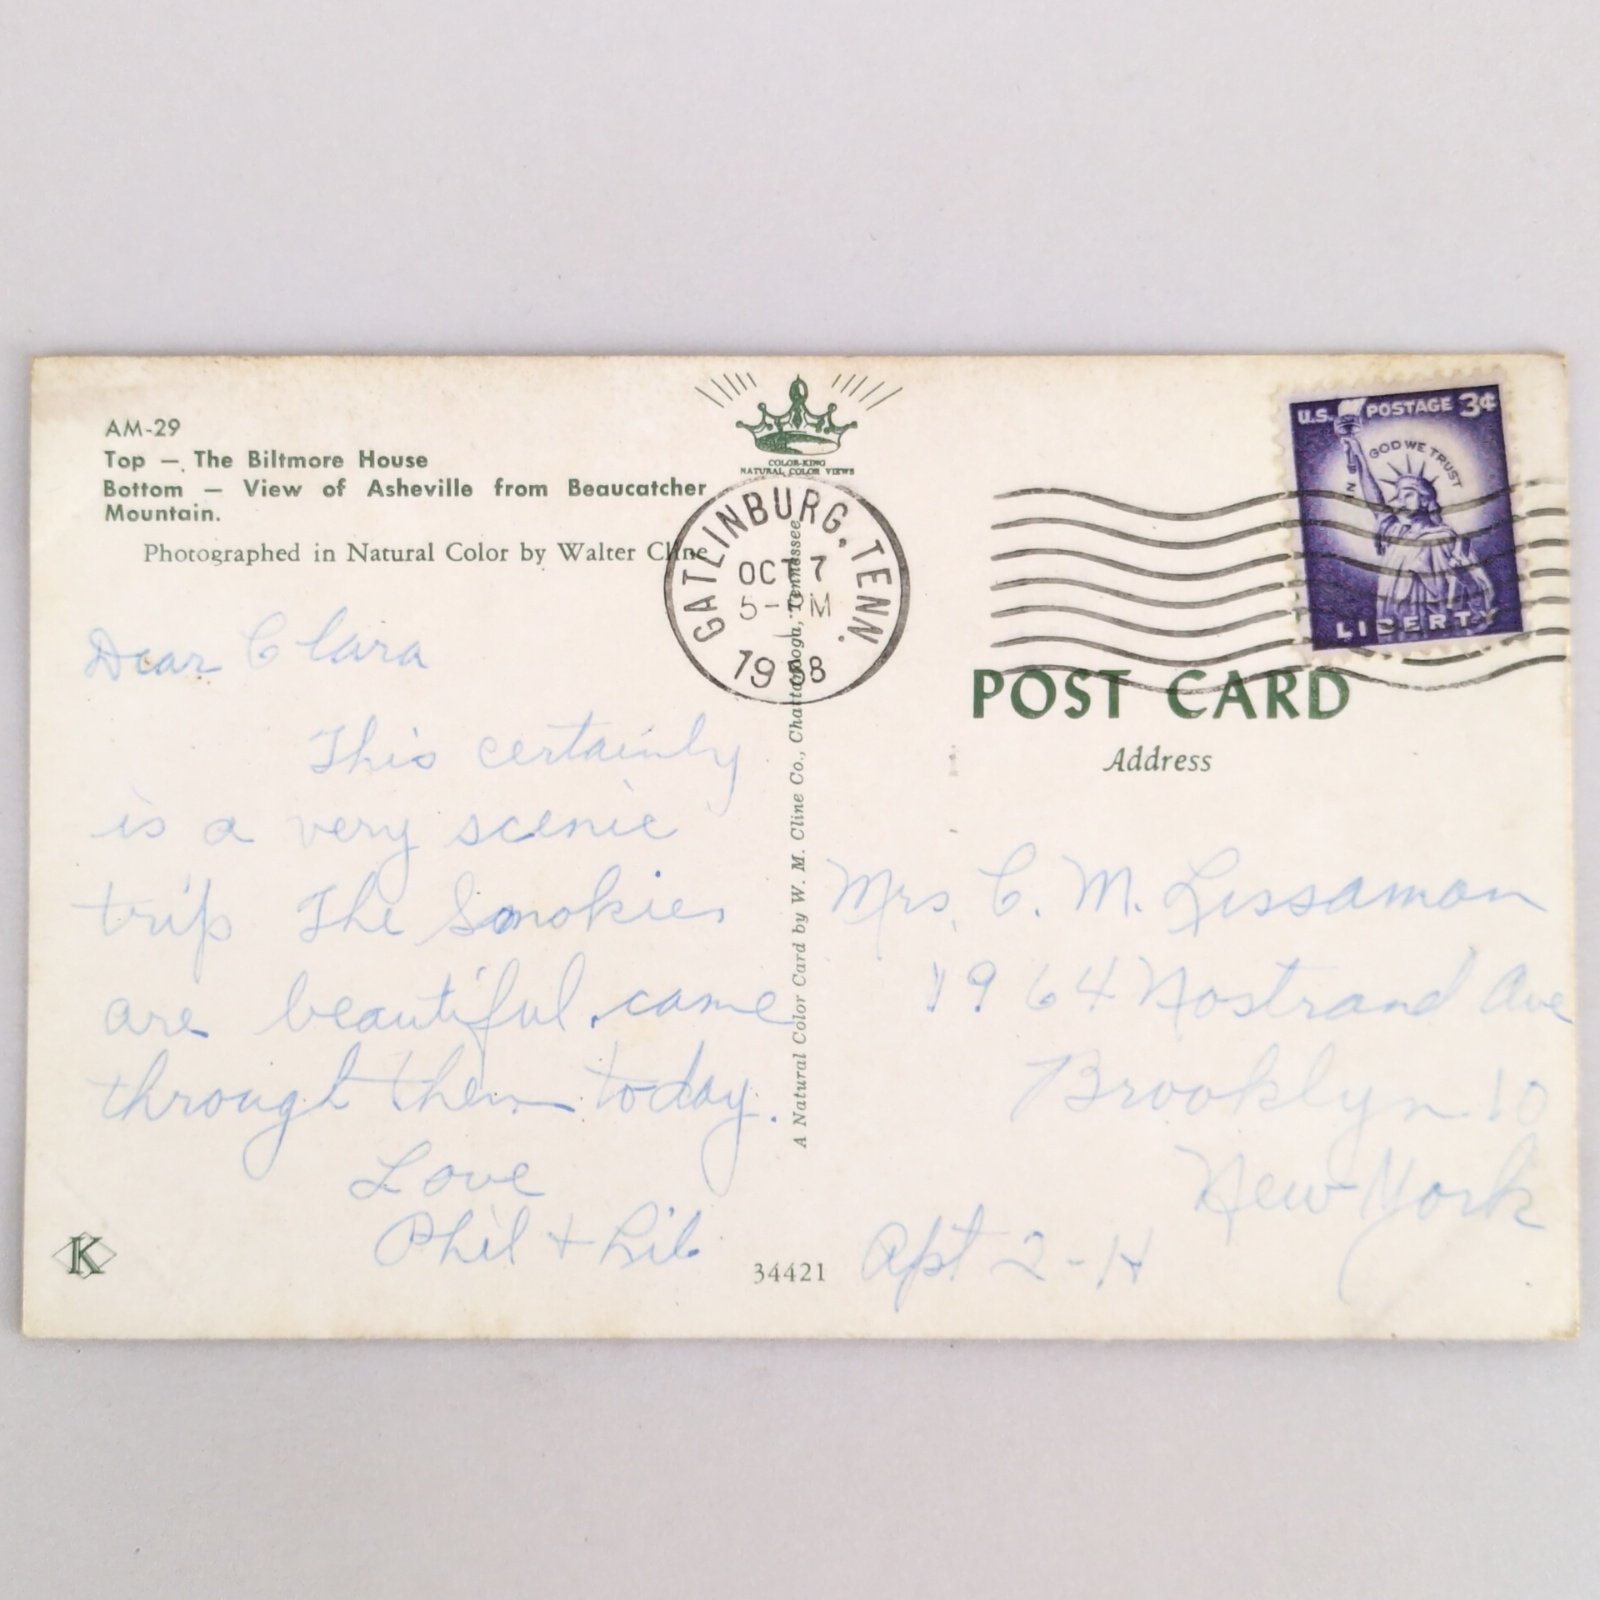 AM-29
Top — The Biltmore House
Bottom — View of Asheville from Beaucatcher
Mountain.
Photographed in Natural Color by Walter Cline
COLOR-KING
NATURAL COLOR VIEWS
GATLINBURG, TENN.
OCT 7
5- PM
1958
U.S. POSTAGE 3¢
IN GOD WE TRUST
LIBERTY
Dear Clara
This certainly
is a very scenic
trip The Smokies
are beautiful. came
through them today.
Love
Phil + Lib
K
34421
A Natural Color Card by W. M. Cline Co., Chattanooga, Tennessee
POST CARD
Address
Mrs. C. M. Lissaman
1964 Nostrand Ave
Brooklyn 10
New York
Apt 2-H